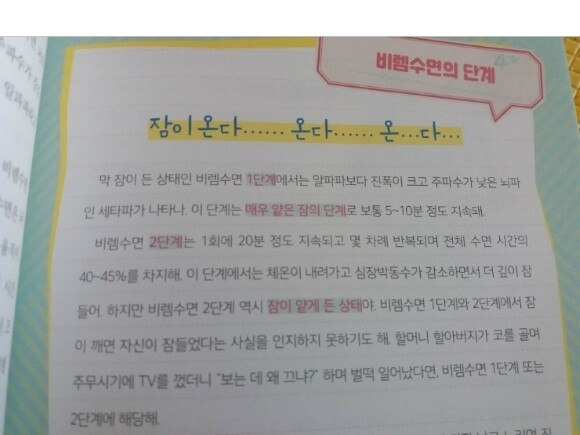 비렘수면의 단계
잠이 온다…… 온다…… 온…다…
막 잠이 든 상태인 비렘수면 1단계에서는 알파파보다 진폭이 크고 주파수가 낮은 뇌파
인 세타파가 나타나. 이 단계는 매우 얕은 잠의 단계로 보통 5~10분 정도 지속돼.
비렘수면 2단계는 1회에 20분 정도 지속되고 몇 차례 반복되며 전체 수면 시간의
40~45%를 차지해. 이 단계에서는 체온이 내려가고 심장박동수가 감소하면서 더 깊이 잠
들어. 하지만 비렘수면 2단계 역시 잠이 얕게 든 상태야. 비렘수면 1단계와 2단계에서 잠
이 깨면 자신이 잠들었다는 사실을 인지하지 못하기도 해. 할머니 할아버지가 코를 골며
주무시기에 TV를 껐더니 “보는 데 왜 끄냐?” 하며 벌떡 일어났다면, 비렘수면 1단계 또는
2단계에 해당해.